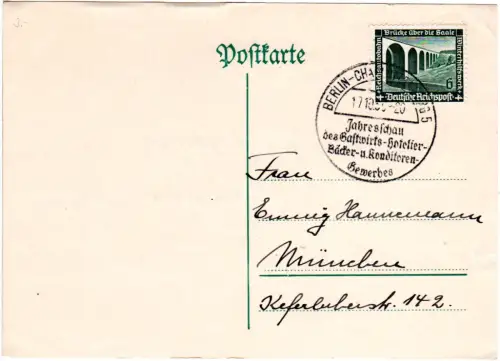 3.-
Postkarte
Reichsautobahn
Brücke über die Saale
Winterhilfswerk
6
Deutsche Reichspost
BERLIN-CHA
5
17.10.36.-20
Jahresschau
des Gastwirts-Hotelier-
Bäcker-u. Konditoren-
Gewerbes
Frau
Emmy Hannemann
München
Keferloherstr. 142.